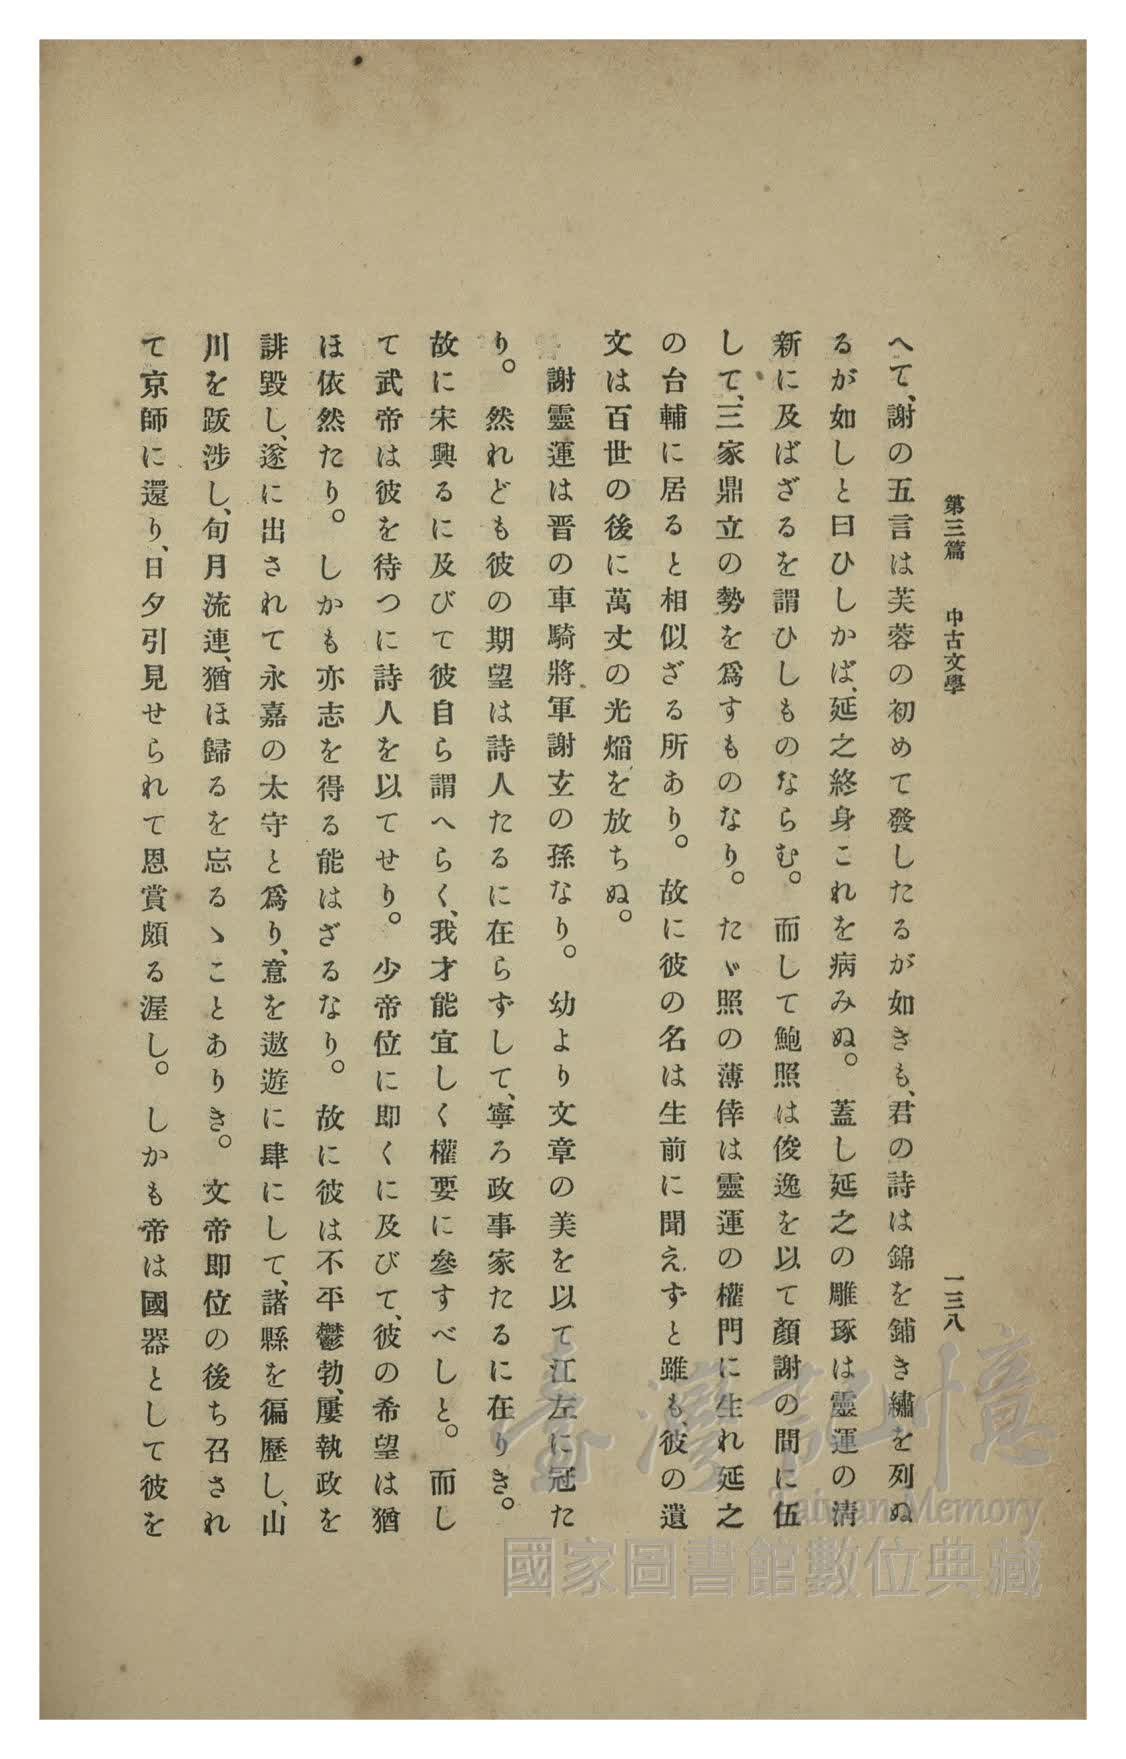 第三篇　中古文學　一三八
へて、謝の五言は芙蓉の初めて發したるが如きも、君の詩は錦を鋪き繡を列ぬ
るが如しと曰ひしかば、延之終身これを病みぬ。蓋し延之の雕琢は靈運の清
新に及ばざるを謂ひしものならむ。而して鮑照は俊逸を以て顏謝の間に伍
して、三家鼎立の勢を爲すものなり。たゞ照の薄倖は靈運の權門に生れ延之
の台輔に居ると相似ざる所あり。故に彼の名は生前に聞えずと雖も、彼の遺
文は百世の後に萬丈の光焰を放ちぬ。
謝靈運は晋の車騎將軍謝玄の孫なり。幼より文章の美を以て江左に冠た
り。然れども彼の期望は詩人たるに在らずして、寧ろ政事家たるに在りき。
故に宋興るに及びて彼自ら謂へらく、我才能宜しく權要に參すべしと。而し
て武帝は彼を待つに詩人を以てせり。少帝位に即くに及びて、彼の希望は猶
ほ依然たり。しかも亦志を得る能はざるなり。故に彼は不平鬱勃、屢執政を
誹毀し、遂に出されて永嘉の太守と爲り、意を遨遊に肆にして、諸縣を徧歷し、山
川を跋涉し、旬月流連、猶ほ歸るを忘るゝことありき。文帝即位の後ち召され
て京師に還り、日夕引見せられて恩賞頗る渥し。しかも帝は國器として彼を
臺灣記憶
Taiwan Memory
國家圖書館數位典藏